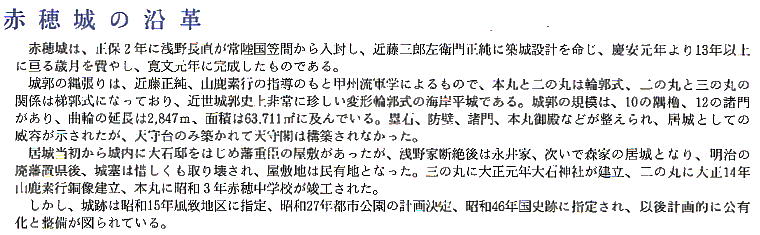 赤穂城の沿革
赤穂城は、正保2年に浅野長直が常陸国笠間から入封し、近藤三郎左衛門正純に築城設計を命じ、慶安元年より13年以上
に亘る歳月を費やし、寛文元年に完成したものである。
城郭の縄張りは、近藤正純、山鹿素行の指導のもと甲州流軍学によるもので、本丸と二の丸は輪郭式、二の丸と三の丸の
関係は梯郭式になっており、近世城郭史上非常に珍しい変形輪郭式の海岸平城である。城郭の規模は、10の隅櫓、12の諸門
があり、曲輪の延長は2,847m、面積は63,711㎡に及んでいる。塁石、防壁、諸門、本丸御殿などが整えられ、居城としての
威容が示されたが、天守台のみ築かれて天守閣は構築されなかった。
居城当初から城内に大石邸をはじめ藩重臣の屋敷があったが、浅野家断絶後は永井家、次いで森家の居城となり、明治の
廃藩置県後、城塞は惜しくも取り壊され、屋敷地は民有地となった。三の丸に大正元年大石神社が建立、二の丸に大正14年
山鹿素行銅像建立、本丸に昭和3年赤穂中学校が竣工された。
しかし、城跡は昭和15年風致地区に指定、昭和27年都市公園の計画決定、昭和46年国史跡に指定され、以後計画的に公有
化と整備が図られている。